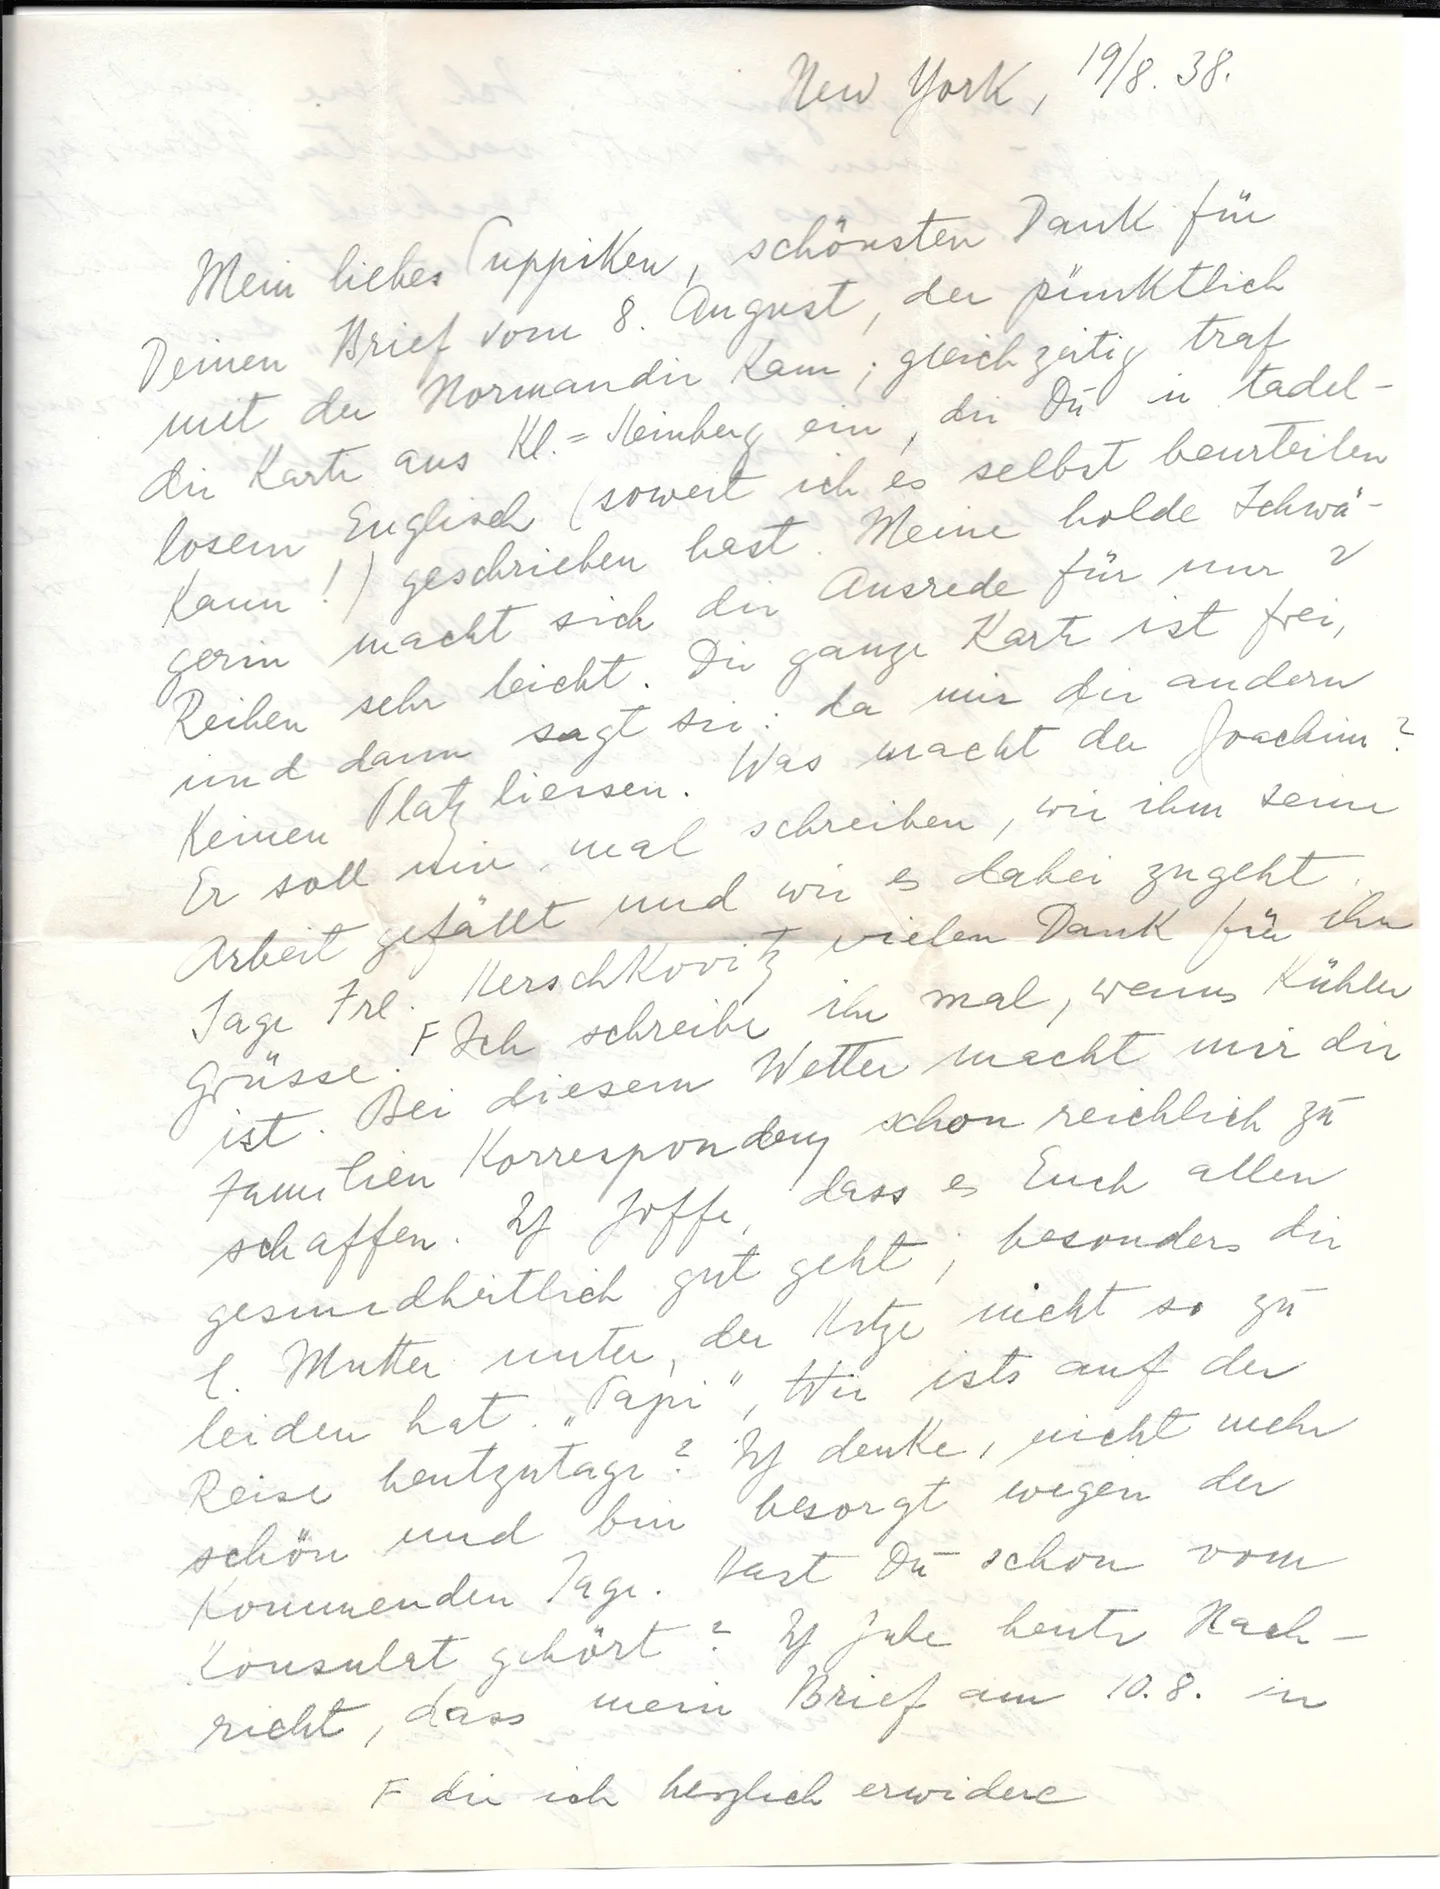 New York, 19/8. 38.
Mein liebes Puppiken, schönsten Dank für
Deinen Brief vom 8. August, der pünktlich
mit der Normandie kam; gleichzeitig traf
die Karte aus Kl.= Heinberg ein, die Du in tadel-
losem Englisch (soweit ich es selbst beurteilen
kann!) geschrieben hast. Meine holde Schwä-
gerin macht sich die Ausrede für nur 2
Reihen sehr leicht. Die ganze Karte ist frei,
und dann sagt sie: da mir die andern
keinen Platz liessen. Was macht der Joachim?
Er soll mir mal schreiben, wie ihm seine
Arbeit gefällt und wie es dabei zugeht.
Sage Frl. Herschkovitz vielen Dank für ihre
Grüsse. F Ich schreibe ihr mal, wenns kühler
ist. Bei diesem Wetter macht mir die
Familien Korrespondenz schon reichlich zu
schaffen. Ich hoffe, dass es Euch allen
gesundheitlich gut geht; besonders die
l. Mutter unter der Hitze nicht so zu
leiden hat. „Papi“, Wie ists auf der
Reise heutzutage? Ich denke, nicht mehr
schön und bin besorgt wegen der
kommenden Tage. Hast Du schon vom
Konsulat gehört? Ich habe heute Nach-
richt, dass mein Brief am 10.8. in
F die ich herzlich erwidere